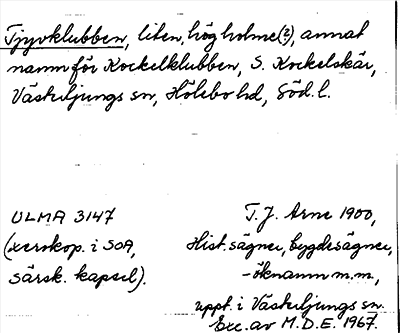 Tjyvklubben, liten, hög holme(?), annat
namn för Kockelklubben, S. Kockelskär,
Västerljungs sn, Hölebo hd, Söd. l.
ULMA 3147
(xeroxkop. i SOA,
särsk. kapsel).
T. J. Arne 1900,
Hist. sägner, bygdesägner,
-öknamn m.m.,
uppt. i Västerljungs sn.
Exc. av M.D.E. 1967.